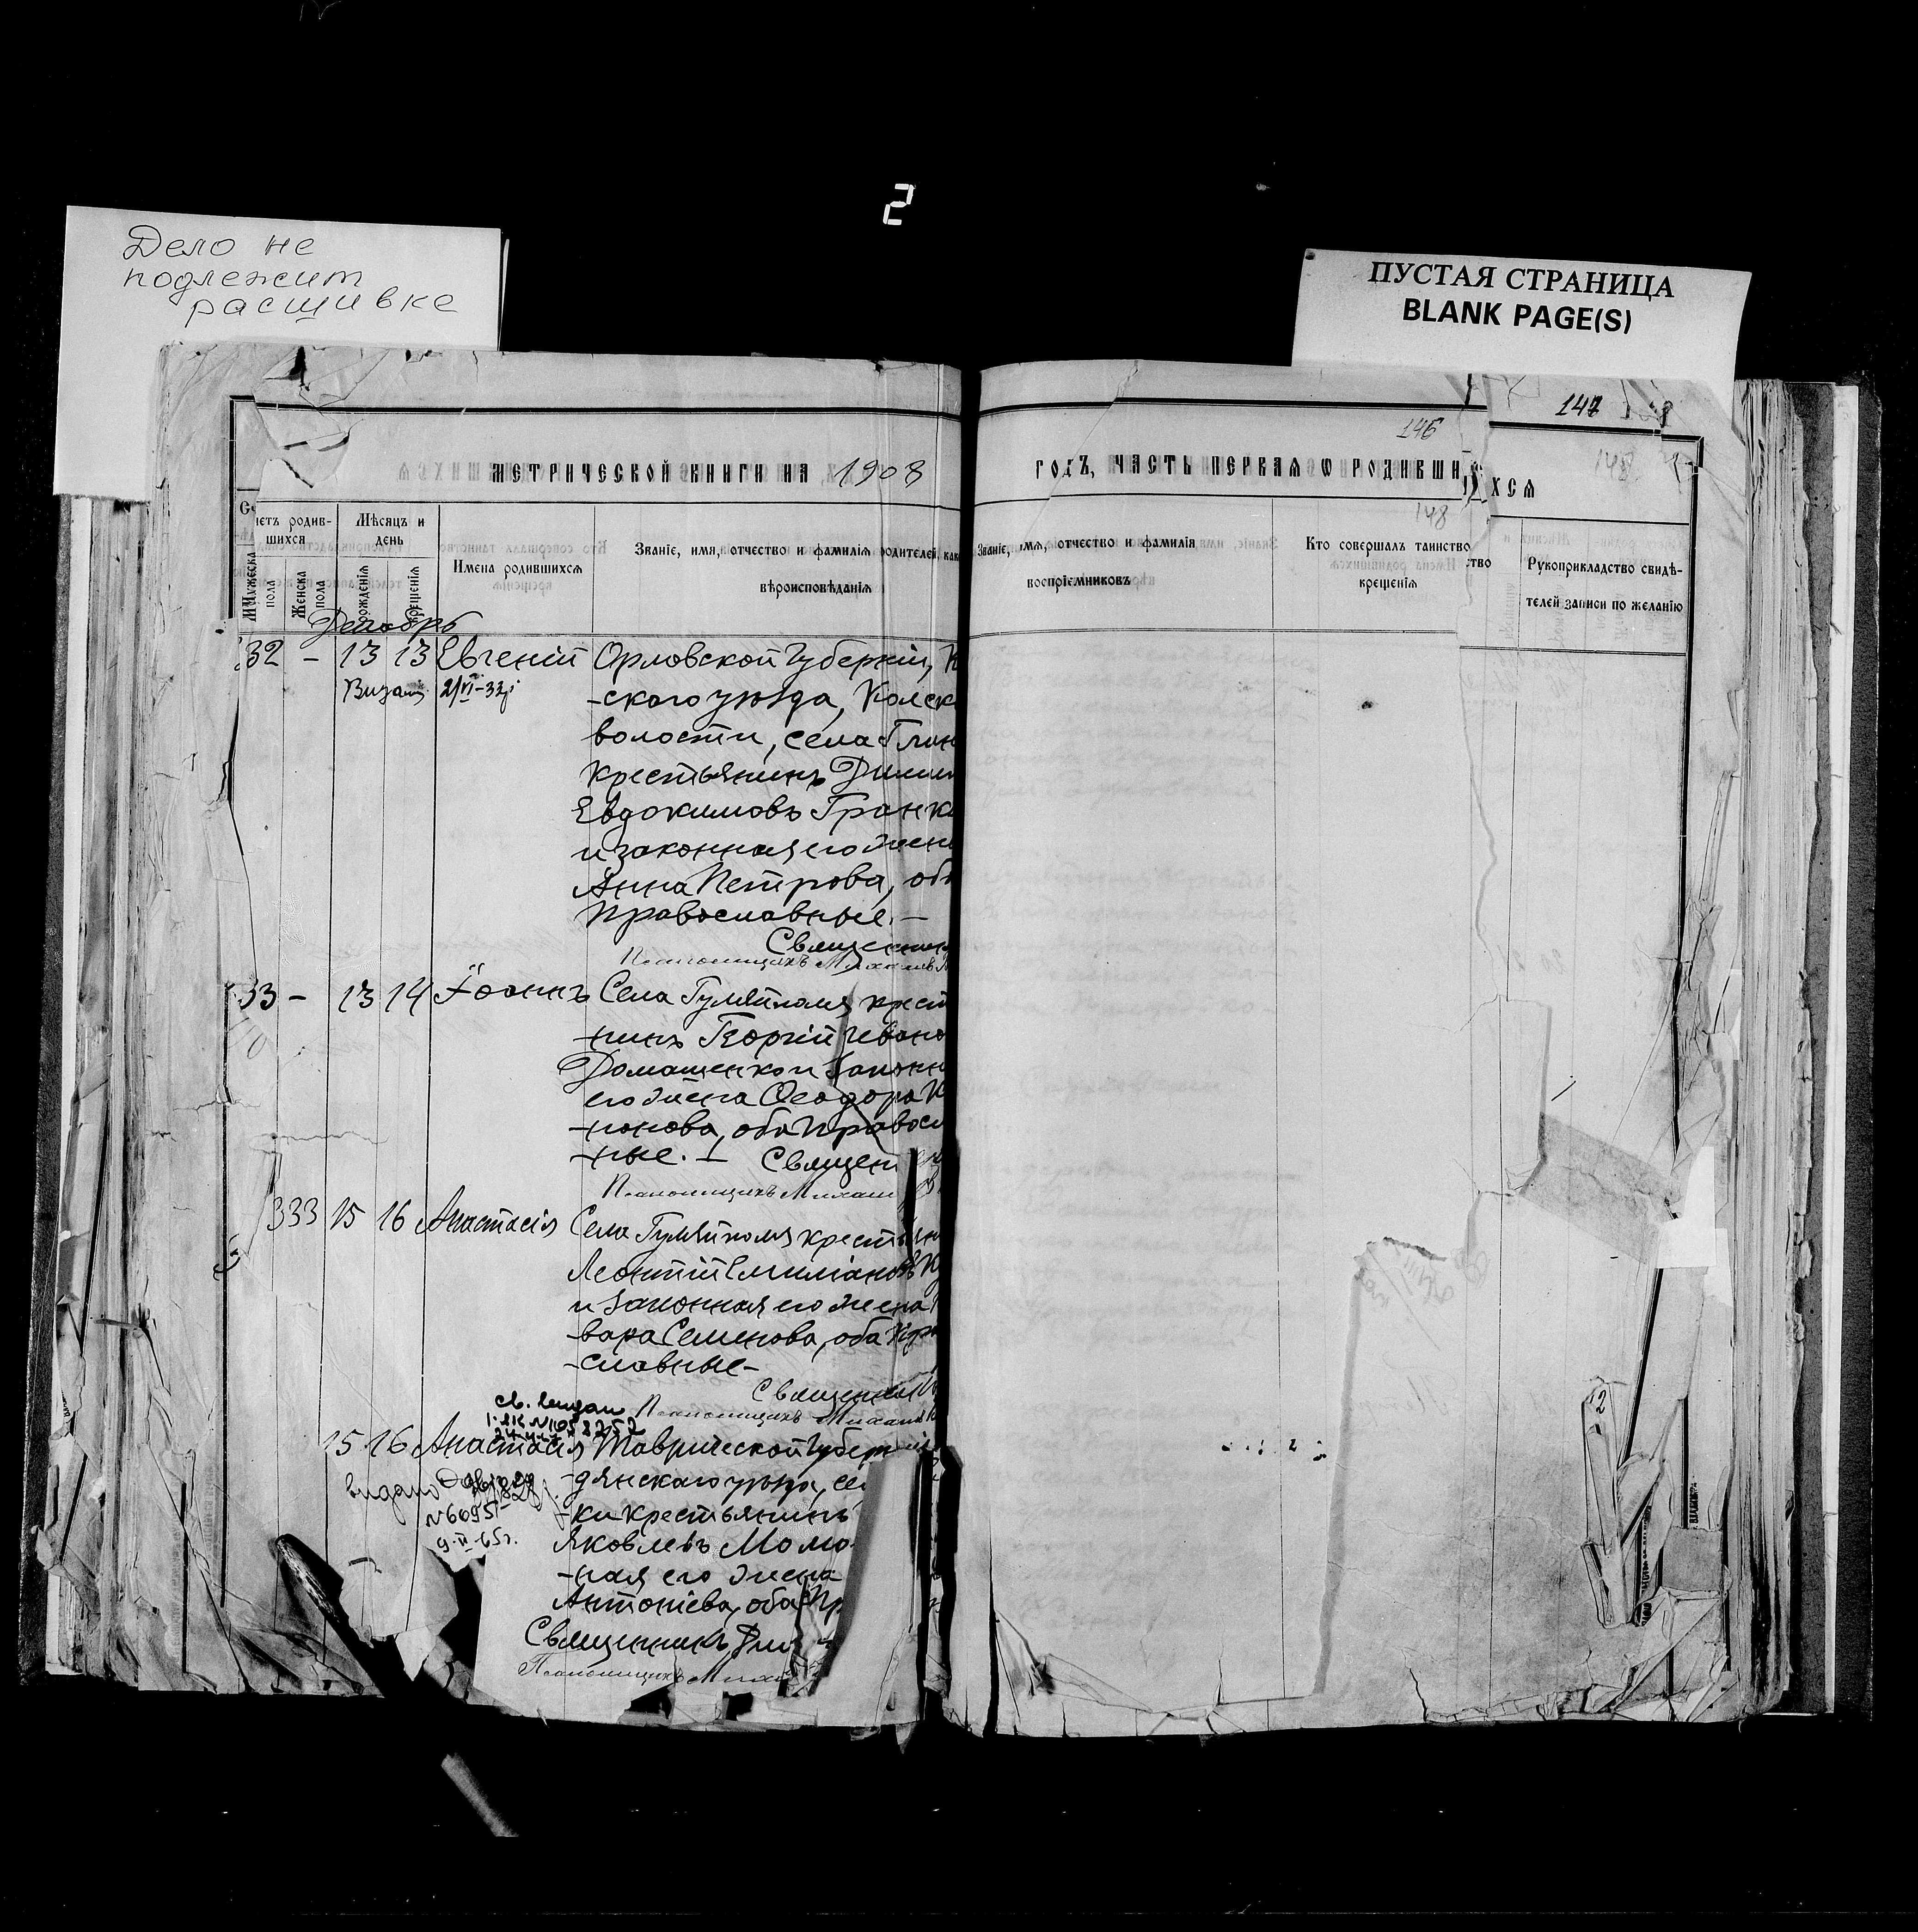 2
Дело не
подлежит
расшивке
ПУСТАЯ СТРАНИЦА
BLANK PAGE(S)
147
146
148
МЕТРИЧЕСКОЙ КНИГИ НА 1908
ГОДЪ, ЧАСТЬ ПЕРВАЯ Ѡ РОДИВШИ
ХСЯ
148
етъ родив-
шихся
Мужеска
пола
Женска
пола
Мѣсяцъ и
день
рожденія
крещенія
Имена родившихся
Званіе, имя, отчество и фамилія родителей, как
вѣроисповѣданія
Званіе, имя, отчество и фамилія
воспріемниковъ
Кто совершалъ таинство
крещенія
Рукоприкладство свидѣ-
телей записи по желанію
Декабрь
32 – 13 13 Евгеній Орловской Губерніи,
Видан 2/VI-32г
-скаго уѣзда,
волости, села Глин
крестьянинъ Дими
Евдокимовъ Гранк
и законная его жен
Анна Петрова, об
Православные. –
Священни
Псаломщикъ Михаилъ
33 – 13 14 Іоаннъ Села Гуляйполя крест
-нинъ Георгій Ивано
Домашенко и законн
его жена Ѳеодора
-нонова, оба Правосл
-ные. – Священ
Псаломщикъ Михаи
333 15 16 Анастасія Села Гуляйполя крестьян
Леонтій Емиліановъ
и законная его жена
-вара Семенова, оба Пра
-славные –
Священни
Псаломщикъ Михаил
св. видан
15 16 Анастасія Таврической Губерн
-дянскаго уѣзда, се
видано
№ 6095
9-II-65г.
-ки крестьянинъ
Яковлевъ Момо
-ная его жена
Антоніева, оба Пр
Священникъ Дим
Псаломщикъ Миха